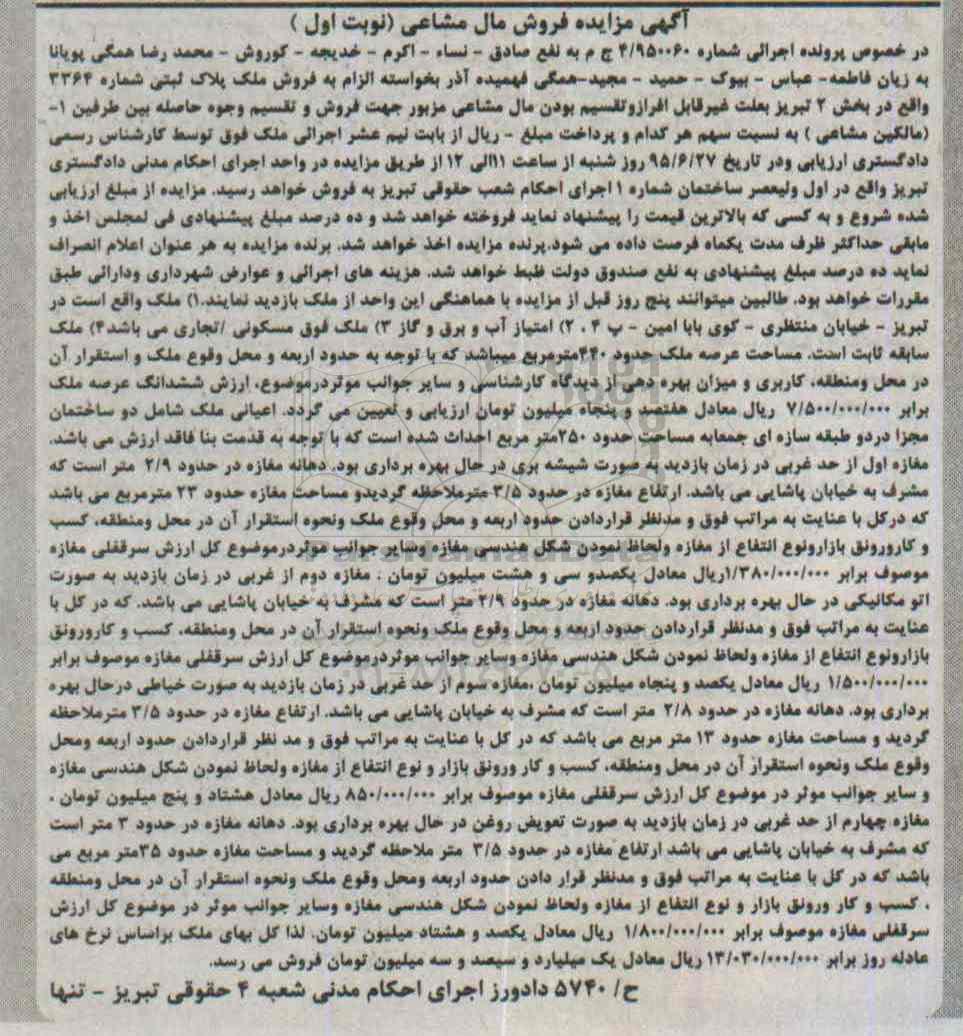 آگهی مزایده فروش مال مشاعی (نوبت اول )
در خصوص پرونده اجرائی شماره ۴/۹۵۰۰۶۰ ج م به نفع صادق - نساء - اکرم - خدیجه - کوروش - محمد رضا همگی پویانا
به زیان فاطمه- عباس - بیوک - حمید - مجید-همگی فهمیده آذر بخواسته الزام به فروش ملک پلاک ثبتی شماره ۳۳۶۴
واقع در بخش ۲ تبریز بعلت غیرقابل افرازوتقسیم بودن مال مشاعی مزبور جهت فروش و تقسیم وجوه حاصله بین طرفین ۱-
(مالکین مشاعی ) به نسبت سهم هر کدام و پرداخت مبلغ - ریال از بابت نیم عشر اجرائی ملک فوق توسط کارشناس رسمی
دادگستری ارزیابی ودر تاریخ ۹۵/۶/۲۷ روز شنبه از ساعت ۱۱الی ۱۲ از طریق مزایده در واحد اجرای احکام مدنی دادگستری
تبریز واقع در اول ولیعصر ساختمان شماره ۱ اجرای احکام شعب حقوقی تبریز به فروش خواهد رسید. مزایده از مبلغ ارزیابی
شده شروع و به کسی که بالاترین قیمت را پیشنهاد نماید فروخته خواهد شد و ده درصد مبلغ پیشنهادی فی لمجلس اخذ و
مابقی حداکثر ظرف مدت یکماه فرصت داده می شود.پرنده مزایده اخذ خواهد شد. برنده مزایده به هر عنوان اعلام انصراف
نماید ده درصد مبلغ پیشنهادی به نفع صندوق دولت ظبط خواهد شد. هزینه های اجرائی و عوارض شهرداری ودارائی طبق
مقررات خواهد بود. طالبین میتوانند پنج روز قبل از مزایده با هماهنگی این واحد از ملک بازدید نمایند.۱) ملک واقع است در
تبریز - خیابان منتظری - کوی بابا امین - پ ۴ . ۲) امتیاز آب و برق و گاز ۳) ملک فوق مسکونی /تجاری می باشد۴) ملک
سابقه ثابت است. مساحت عرصه ملک حدود ۴۴۰مترمربع میباشد که با توجه به حدود اربعه و محل وقوع ملک و استقرار آن
در محل ومنطقه، کاربری و میزان بهره دهی از دیدگاه کارشناسی و سایر جوانب موثردرموضوع، ارزش ششدانگ عرصه ملک
برابر ۷/۵۰۰/۰۰۰/۰۰۰ ریال معادل هفتصد و پنجاه میلیون تومان ارزیابی و تعیین می گردد. اعیانی ملک شامل دو ساختمان
مجزا دردو طبقه سازه ای جمعابه مساحت حدود ۲۵۰متر مربع احداث شده است که با توجه به قدمت بنا فاقد ارزش می باشد.
مغازه اول از حد غربی در زمان بازدید به صورت شیشه بری در حال بهره برداری بود. دهانه مغازه در حدود ۲/۹ متر است که
مشرف به خیابان پاشایی می باشد. ارتفاع مغازه در حدود ۳/۵ مترملاحظه گردیدو مساحت مغازه حدود ۲۳ مترمربع می باشد
که درکل با عنایت به مراتب فوق و مدنظر قراردادن حدود اربعه و محل وقوع ملک ونحوه استقرار آن در محل ومنطقه، کسب
و کارورونق بازارونوع انتفاع از مغازه ولحاظ نمودن شکل هندسی مغازه وسایر جوانب موثردرموضوع کل ارزش سرقفلی مغازه
موصوف برابر ۱/۳۸۰/۰۰۰/۰۰۰ریال معادل یکصدو سی و هشت میلیون تومان . مغازه دوم از غربی در زمان بازدید به صورت
اتو مکانیکی در حال بهره برداری بود. دهانه مغازه در حدود ۲/۹ متر است که مشرف به خیابان پاشایی می باشد. که در کل با
عنایت به مراتب فوق و مدنظر قراردادن حدود اربعه و محل وقوع ملک ونحوه استقرار آن در محل ومنطقه، کسب و کارورونق
بازارونوع انتفاع از مغازه ولحاظ نمودن شکل هندسی مغازه وسایر جوانب موثردرموضوع کل ارزش سرقفلی مغازه موصوف برابر
۱/۵۰۰/۰۰۰/۰۰۰ ریال معادل یکصد و پنجاه میلیون تومان .مغازه سوم از حد غربی در زمان بازدید به صورت خیاطی درحال بهره
برداری بود. دهانه مغازه در حدود ۲/۸ متر است که مشرف به خیابان پاشایی می باشد. ارتفاع مغازه در حدود ۳/۵ مترملاحظه
گردید و مساحت مغازه حدود ۱۳ متر مربع می باشد که در کل با عنایت به مراتب فوق و مد نظر قراردادن حدود اربعه ومحل
وقوع ملک ونحوه استقرار آن در محل ومنطقه، کسب و کار ورونق بازار و نوع انتفاع از مغازه ولحاظ نمودن شکل هندسی مغازه
و سایر جوانب موثر در موضوع کل ارزش سرقفلی مغازه موصوف برابر ۸۵۰/۰۰۰/۰۰۰ ریال معادل هشتاد و پنج میلیون تومان .
مغازه چهارم از حد غربی در زمان بازدید به صورت تعویض روغن در حال بهره برداری بود. دهانه مغازه در حدود ۳ متر است
که مشرف به خیابان پاشایی می باشد ارتفاع مغازه در حدود ۳/۵ متر ملاحظه گردید و مساحت مغازه حدود ۳۵متر مربع می
باشد که در کل با عنایت به مراتب فوق و مدنظر قرار دادن حدود اربعه ومحل وقوع ملک ونحوه استقرار آن در محل ومنطقه
. کسب و کار ورونق بازار و نوع انتفاع از مغازه ولحاظ نمودن شکل هندسی مغازه وسایر جوانب موثر در موضوع کل ارزش
سرقفلی مغازه موصوف برابر ۱/۸۰۰/۰۰۰/۰۰۰ ریال معادل یکصد و هشتاد میلیون تومان. لذا کل بهای ملک براساس نرخ های
عادله روز برابر ۱۳/۰۳۰/۰۰۰/۰۰۰ ریال معادل یک میلیارد و سیصد و سه میلیون تومان فروش می رسد.
ح/ ۵۷۴۰ دادورز اجرای احکام مدنی شعبه ۴ حقوقی تبریز - تنها
ParsNamadData